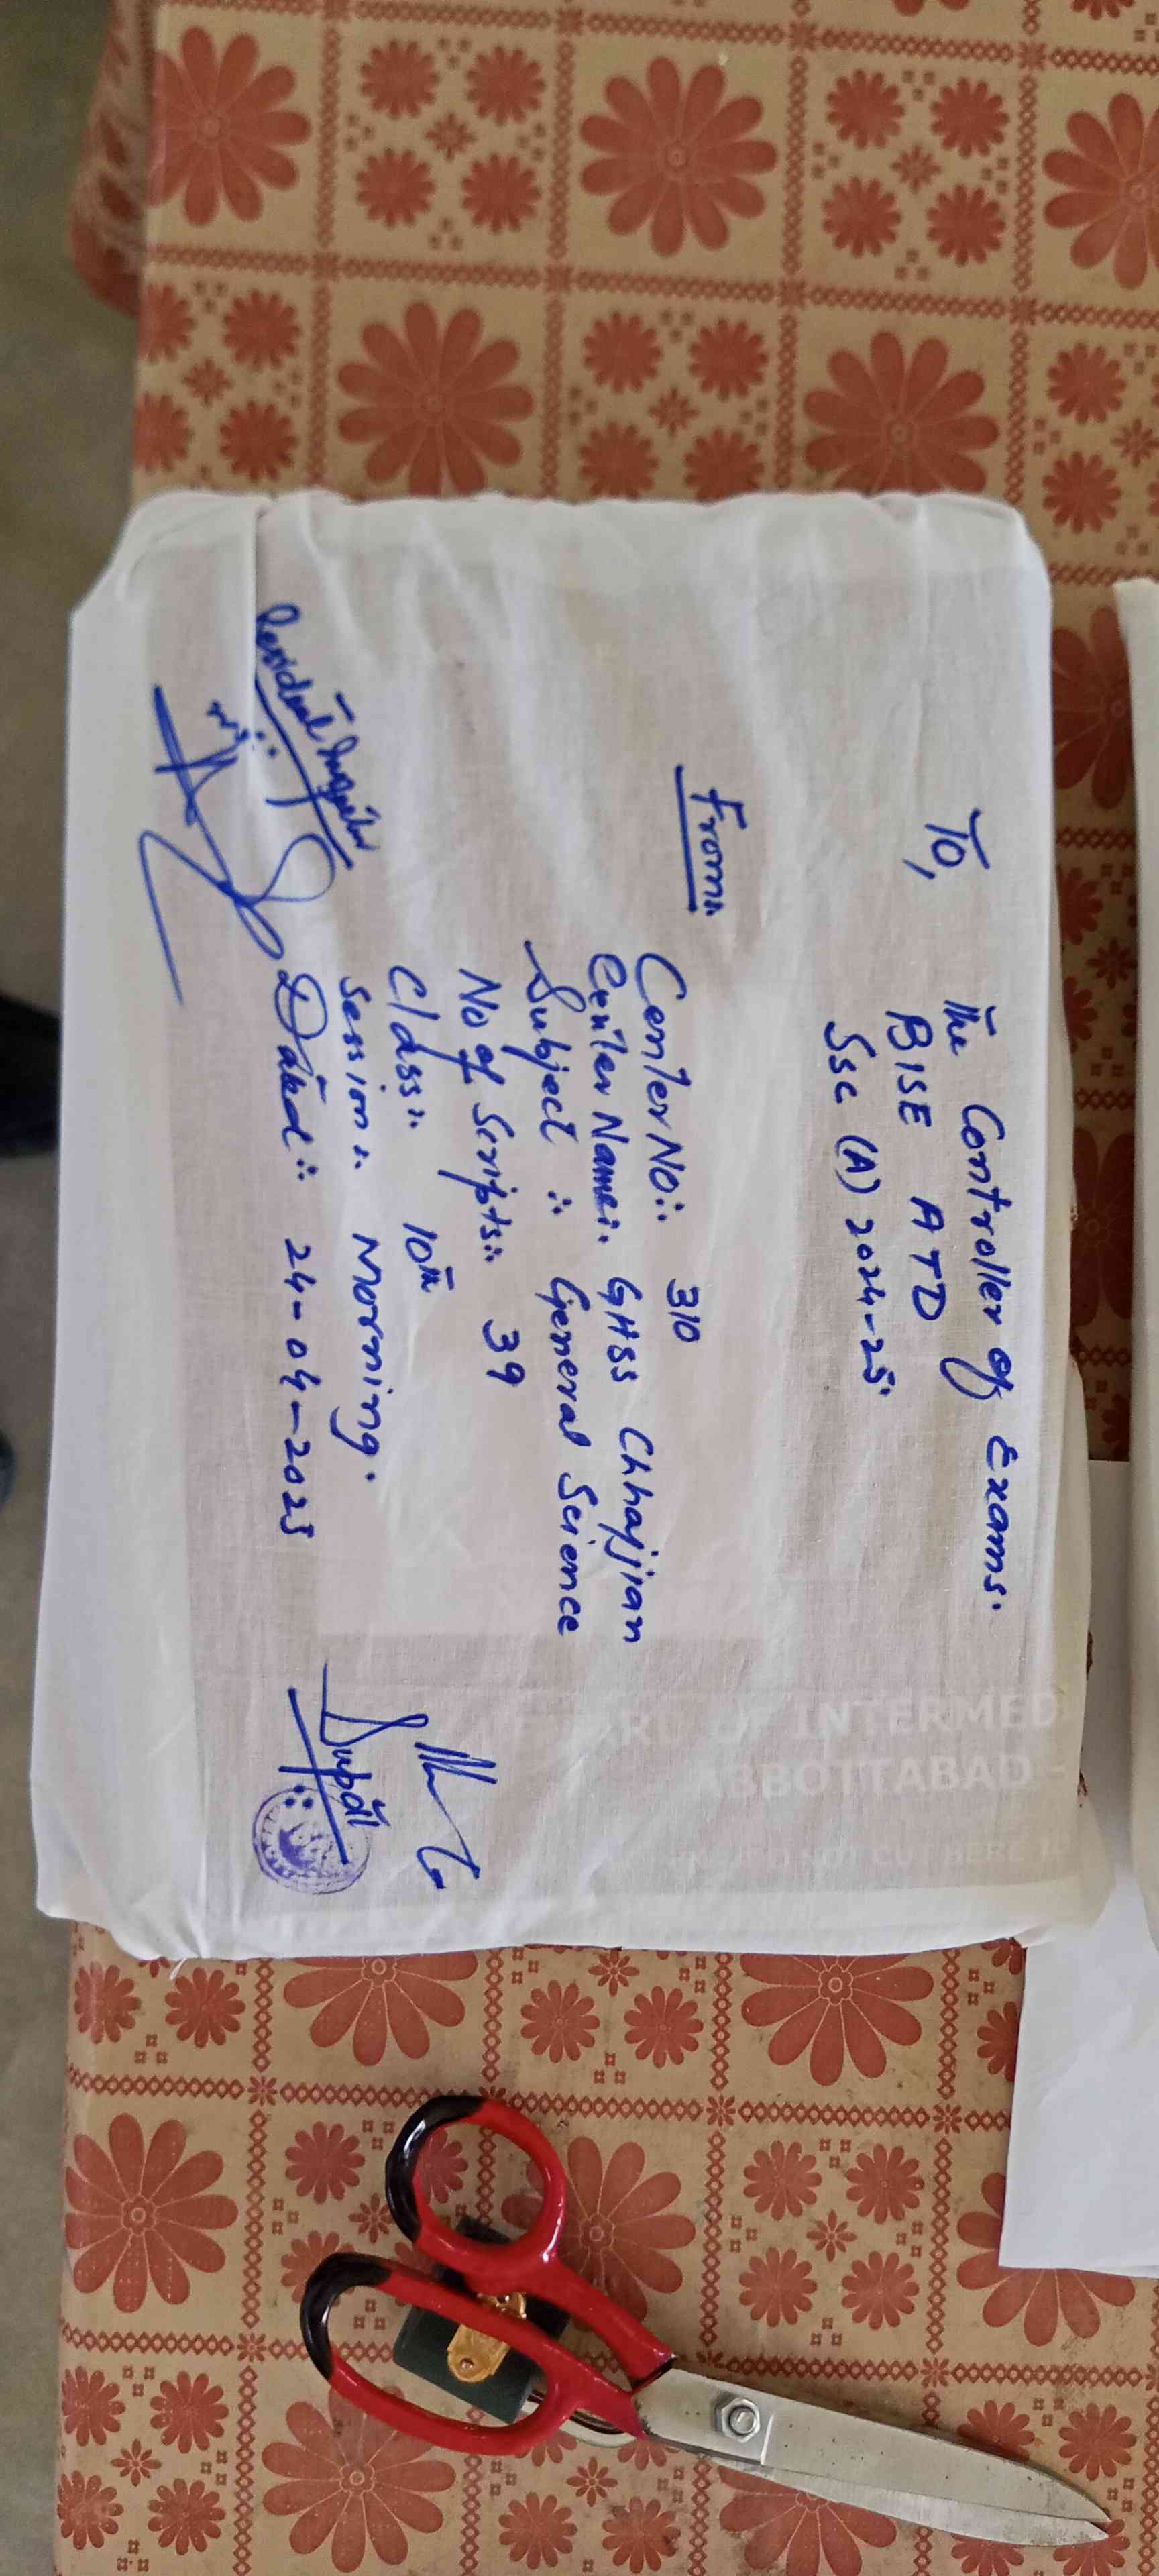 To,
The Controller of Exams.
BISE ATD
SSC (A) 2024-25.
From:.
Center No:. 310
Center Name:. GHSS Chhajjian
Subject :. General Science
No of Scripts:. 39
Class:. 10th
Session:. Morning.
Dated:. 24-04-2025
Resident Inspector
Supdt
OF INTERMED
ABBOTTABAD -